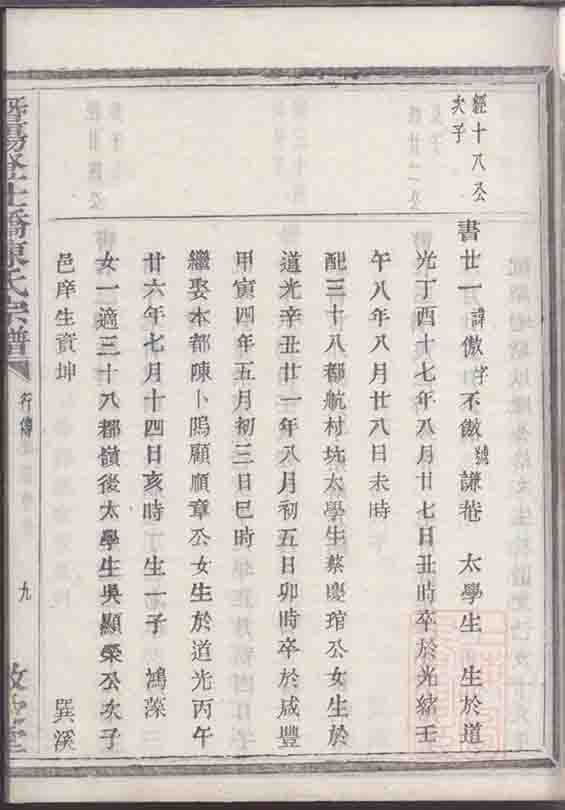 經十八公
次子
書廿一諱傲字不傲號謙菴 太學生 生於道
光丁酉十七年八月廿七日丑時卒於光緒壬
午八年八月廿八日未時
配三十八都航村坑太學生蔡慶琯公女生於
道光辛丑廿一年八月初五日卯時卒於咸豐
甲寅四年五月初三日巳時
繼娶本都陳卜隝顧順章公女生於道光丙午
廿六年七月十四日亥時 生一子 鴻藻
女一適三十八都嶺後太學生吳顯榮公次子
邑庠生資坤
暨陽 橋陳氏宗譜
行傳
九
巽溪